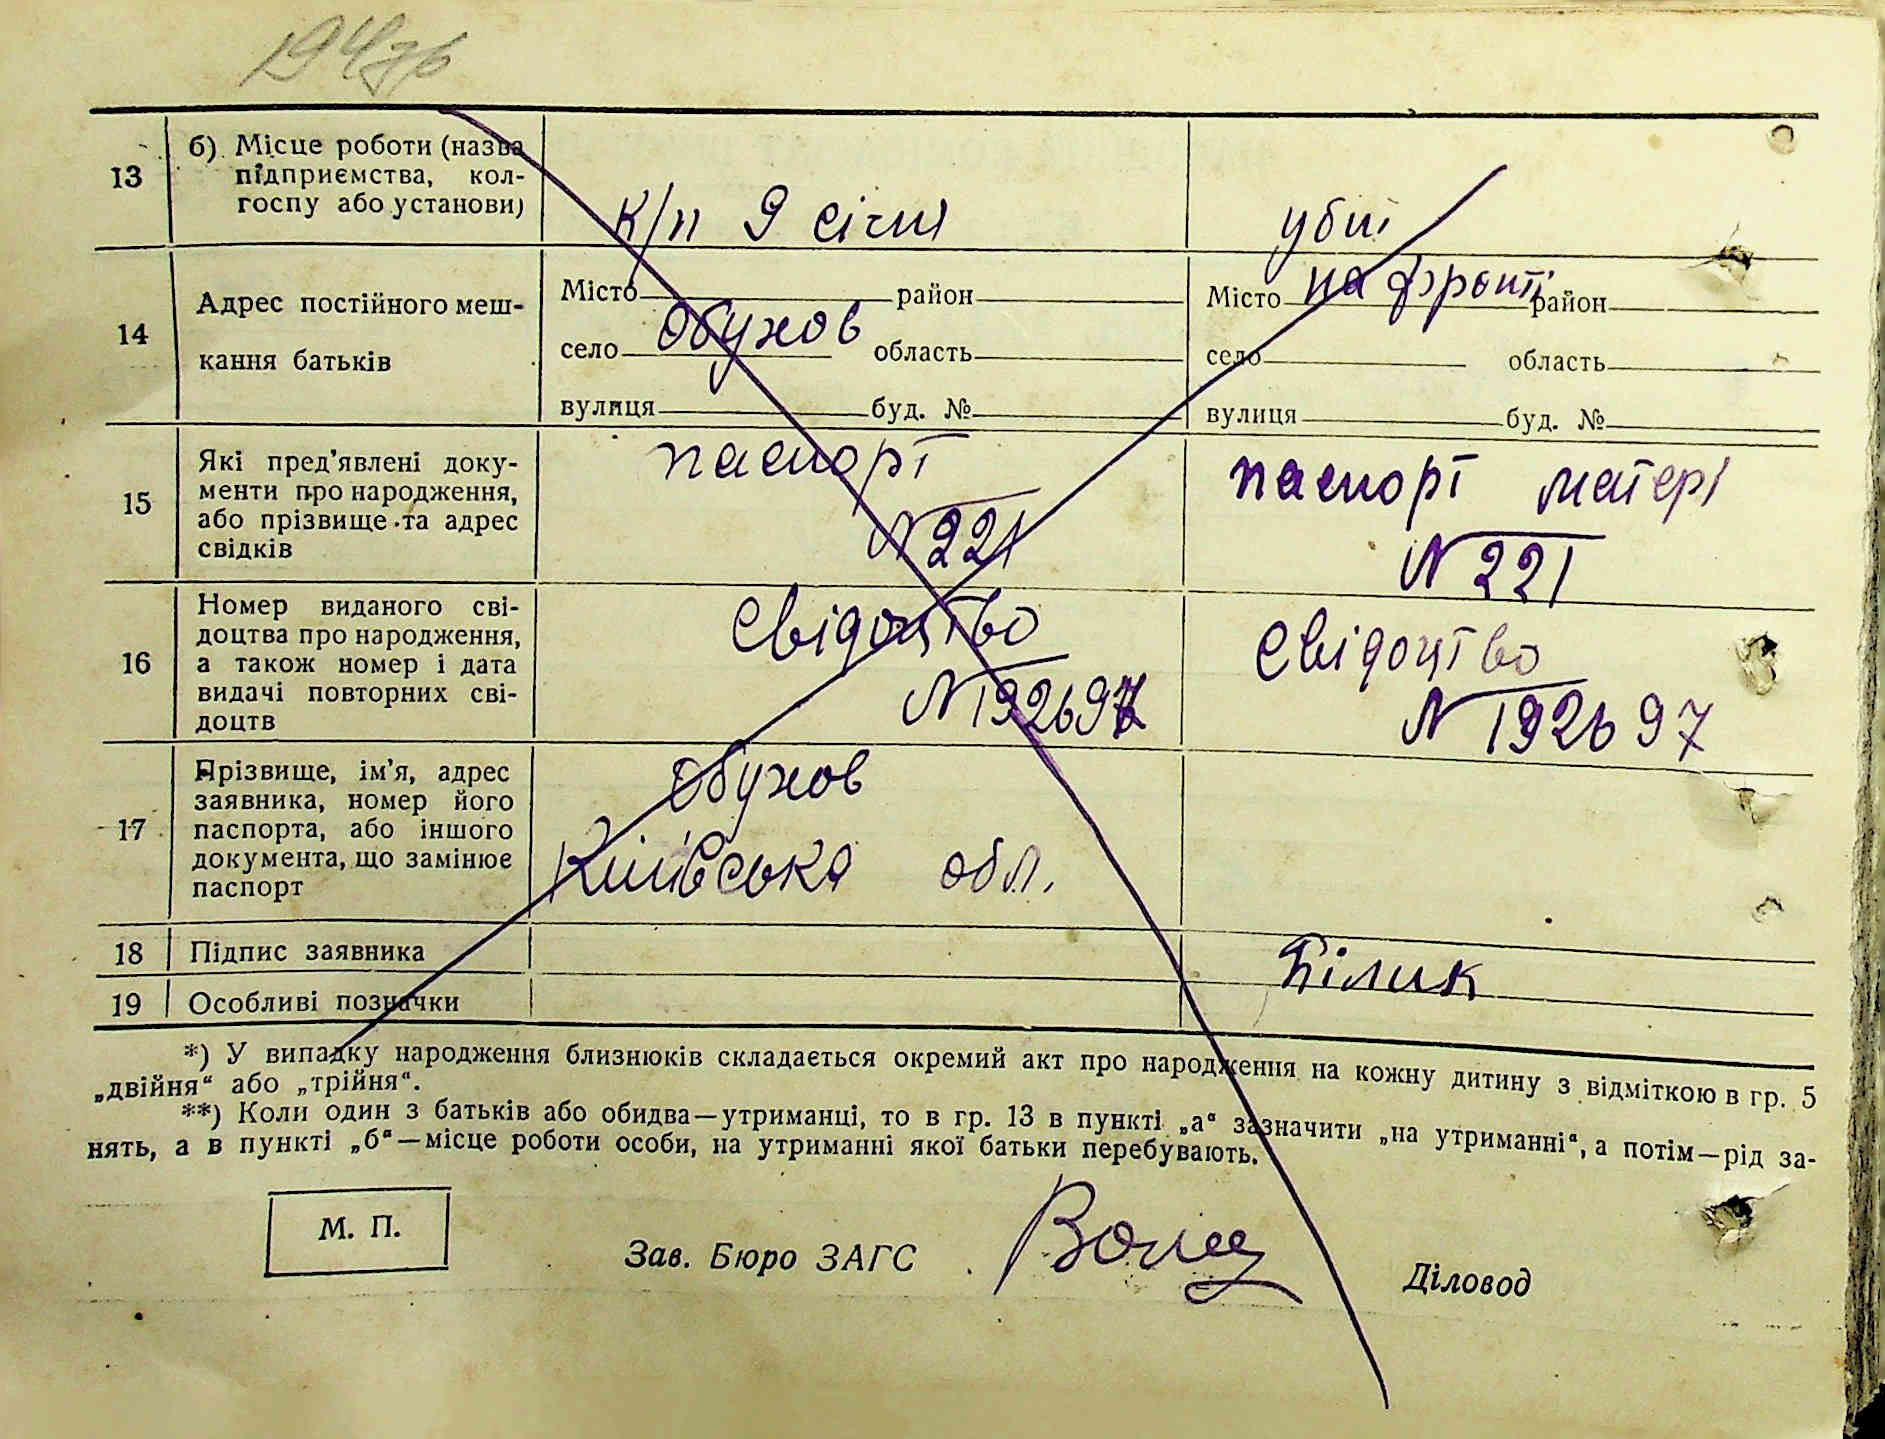 13
б) Місце роботи (назва
підприємства, кол-
госпу або установи)
к/п 9 січня
убит
14
Адрес постійного меш-
кання батьків
Місто район
село Обухов область
вулиця буд. №
Місто на фронті район
село область
вулиця буд. №
15
Які пред'явлені доку-
менти про народження,
або прізвище та адрес
свідків
паспорт
N 221
паспорт матері
N 221
16
Номер виданого сві-
доцтва про народження,
а також номер і дата
видачі повторних сві-
доцтв
Свідоцтво
N 192697
Свідоцтво
N 192697
17
Прізвище, ім'я, адрес
заявника, номер його
паспорта, або іншого
документа, що замінює
паспорт
Обухов
Київська обл.
18 Підпис заявника
Білик
19 Особливі позначки
*) У випадку народження близнюків складається окремий акт про народження на кожну дитину з відміткою в гр. 5
„двійня“ або „трійня“.
**) Коли один з батьків або обидва—утриманці, то в гр. 13 в пункті „а“ зазначити „на утриманні“, а потім—рід за-
нять, а в пункті „б“—місце роботи особи, на утриманні якої батьки перебувають.
М. П.
Зав. Бюро ЗАГС
Діловод